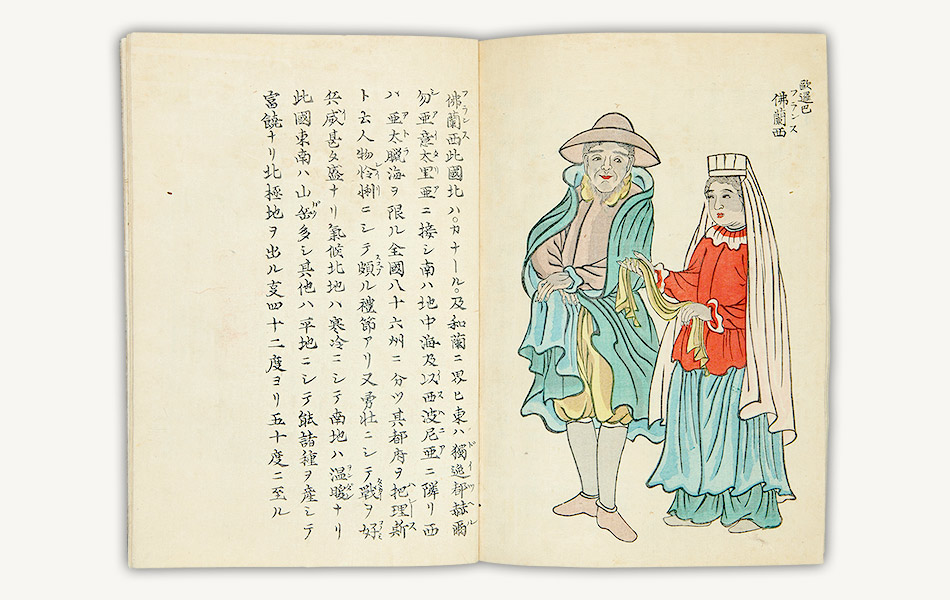 歐邏巴
フランス
佛蘭西
佛蘭西此國北ハ。カナール。及和蘭ニ界ヒ東ハ獨逸都赫爾
勿亜意太里亜ニ接シ南ハ地中海及以西波尼亜ニ隣リ西
ハ亜太臘海ヲ限ル全國八十六州ニ分ツ其都府ヲ把理斯
ト云人物怜悧ニシテ頗ル禮節アリ又勇壮ニシテ戰ヲ好
兵威甚タ盛ナリ氣候北地ハ寒冷ニシテ南地ハ温暖ナリ
此國東南ハ山岳多シ其他ハ平地ニシテ能諸種ヲ産シテ
富饒ナリ北極地ヲ出ル叓四十二度ヨリ五十度ニ至ル